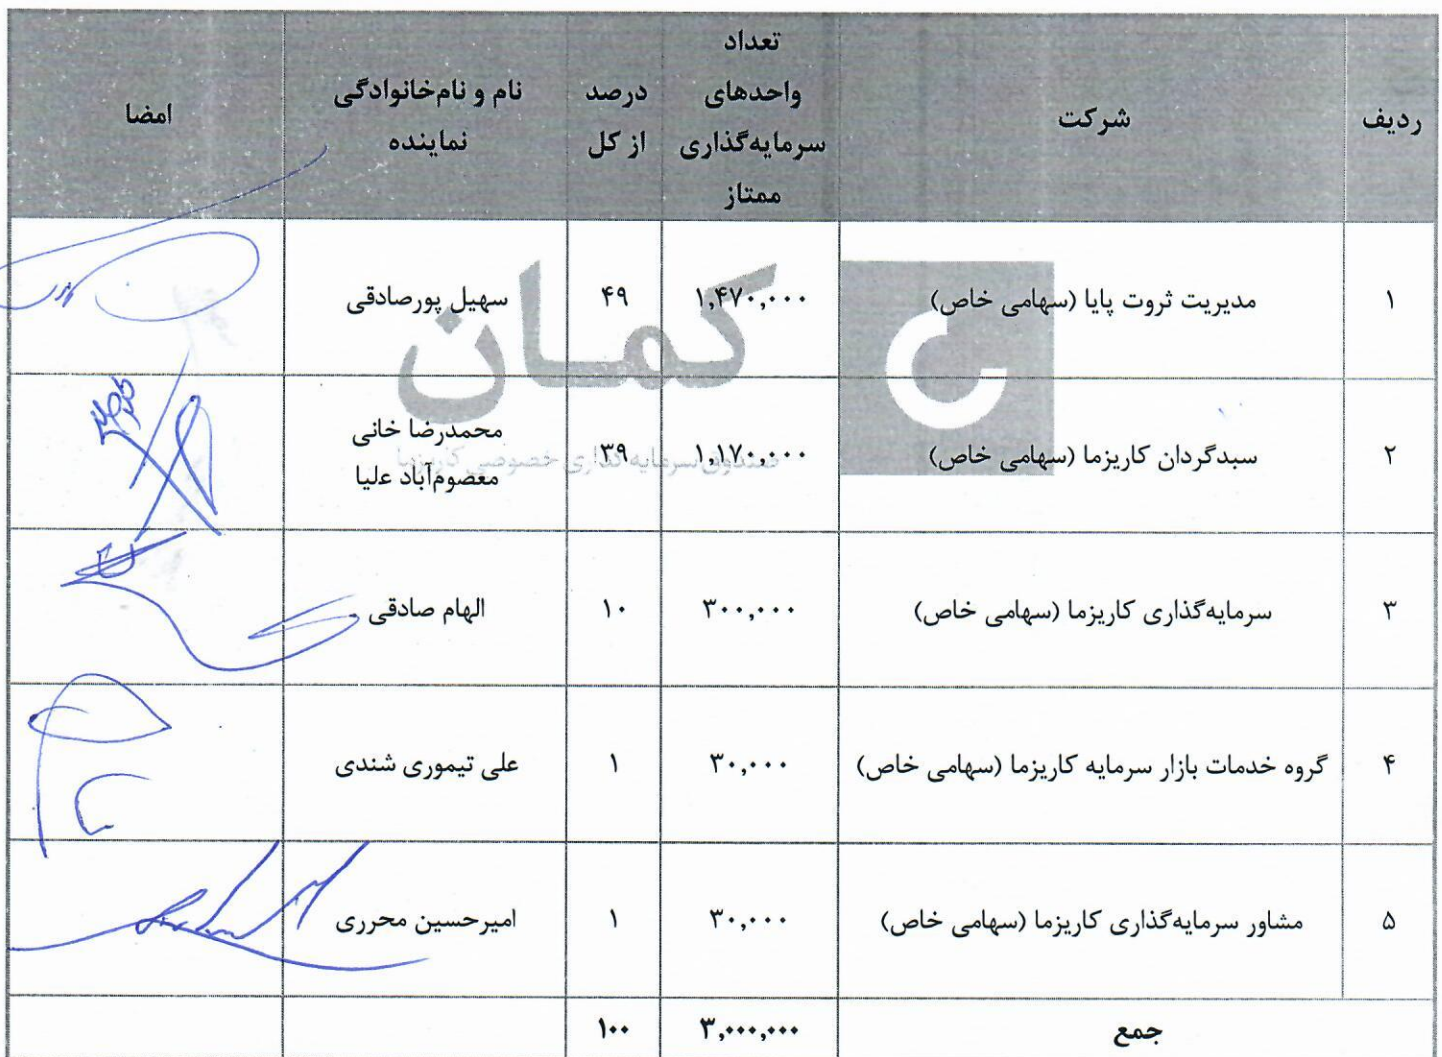 ردیف
شرکت
تعداد
واحدهای
سرمایه‌گذاری
ممتاز
درصد
از کل
نام و نام‌خانوادگی
نماینده
امضا
۱
مدیریت ثروت پایا (سهامی خاص)
۱,۴۷۰,۰۰۰
۴۹
سهیل پورصادقی
۲
سبدگردان کاریزما (سهامی خاص)
۱,۱۷۰,۰۰۰
۳۹
محمدرضا خانی
معصوم‌آباد علیا
۳
سرمایه‌گذاری کاریزما (سهامی خاص)
۳۰۰,۰۰۰
۱۰
الهام صادقی
۴
گروه خدمات بازار سرمایه کاریزما (سهامی خاص)
۳۰,۰۰۰
۱
علی تیموری شندی
۵
مشاور سرمایه‌گذاری کاریزما (سهامی خاص)
۳۰,۰۰۰
۱
امیرحسین محرری
جمع
۳,۰۰۰,۰۰۰
۱۰۰
کمان
صندوق سرمایه گذاری خصوصی کاریزما